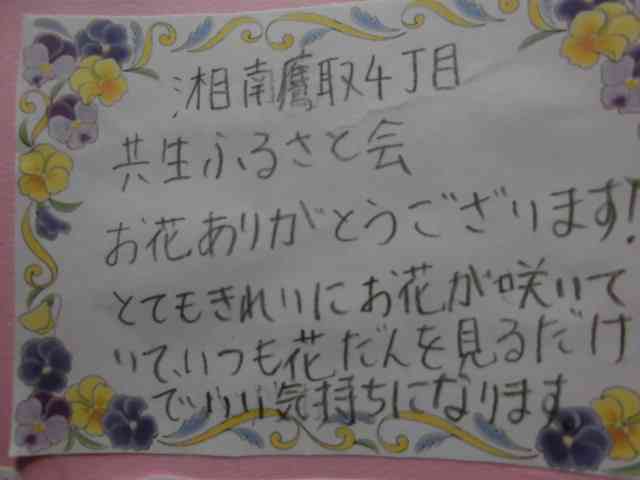 湘南鷹取4丁目
共生ふるさと会
お花ありがとうございます!
とてもきれいにお花が咲いて
いて、いつも花だんを見るだけ
でいい気持ちになります